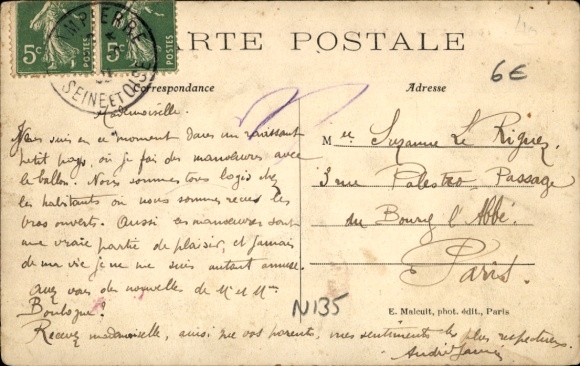 5c 5c
AMPIERRE
SEINE ET OISE
CARTE POSTALE
6€
Correspondance
Adresse
Mademoiselle.
Je suis en ce moment dans un ravissant
petit pays, où je fais des manœuvres avec
le ballon. Nous sommes tous logés chez
les habitants où nous sommes reçus les
bras ouverts. Aussi les manœuvres sont
une vraie partie de plaisir, et jamais
de ma vie je ne me suis autant amusé.
Avez vous des nouvelles de Mr et Mme
Boulogne?
Recevez mademoiselle, ainsi que vos parents, mes sentiments les plus respectueux.
André
Melle Suzanne Le Riguez
3 rue Palestro Passage
du Bourg l'Abbé.
Paris.
N135
E. Malcuit, phot. édit., Paris